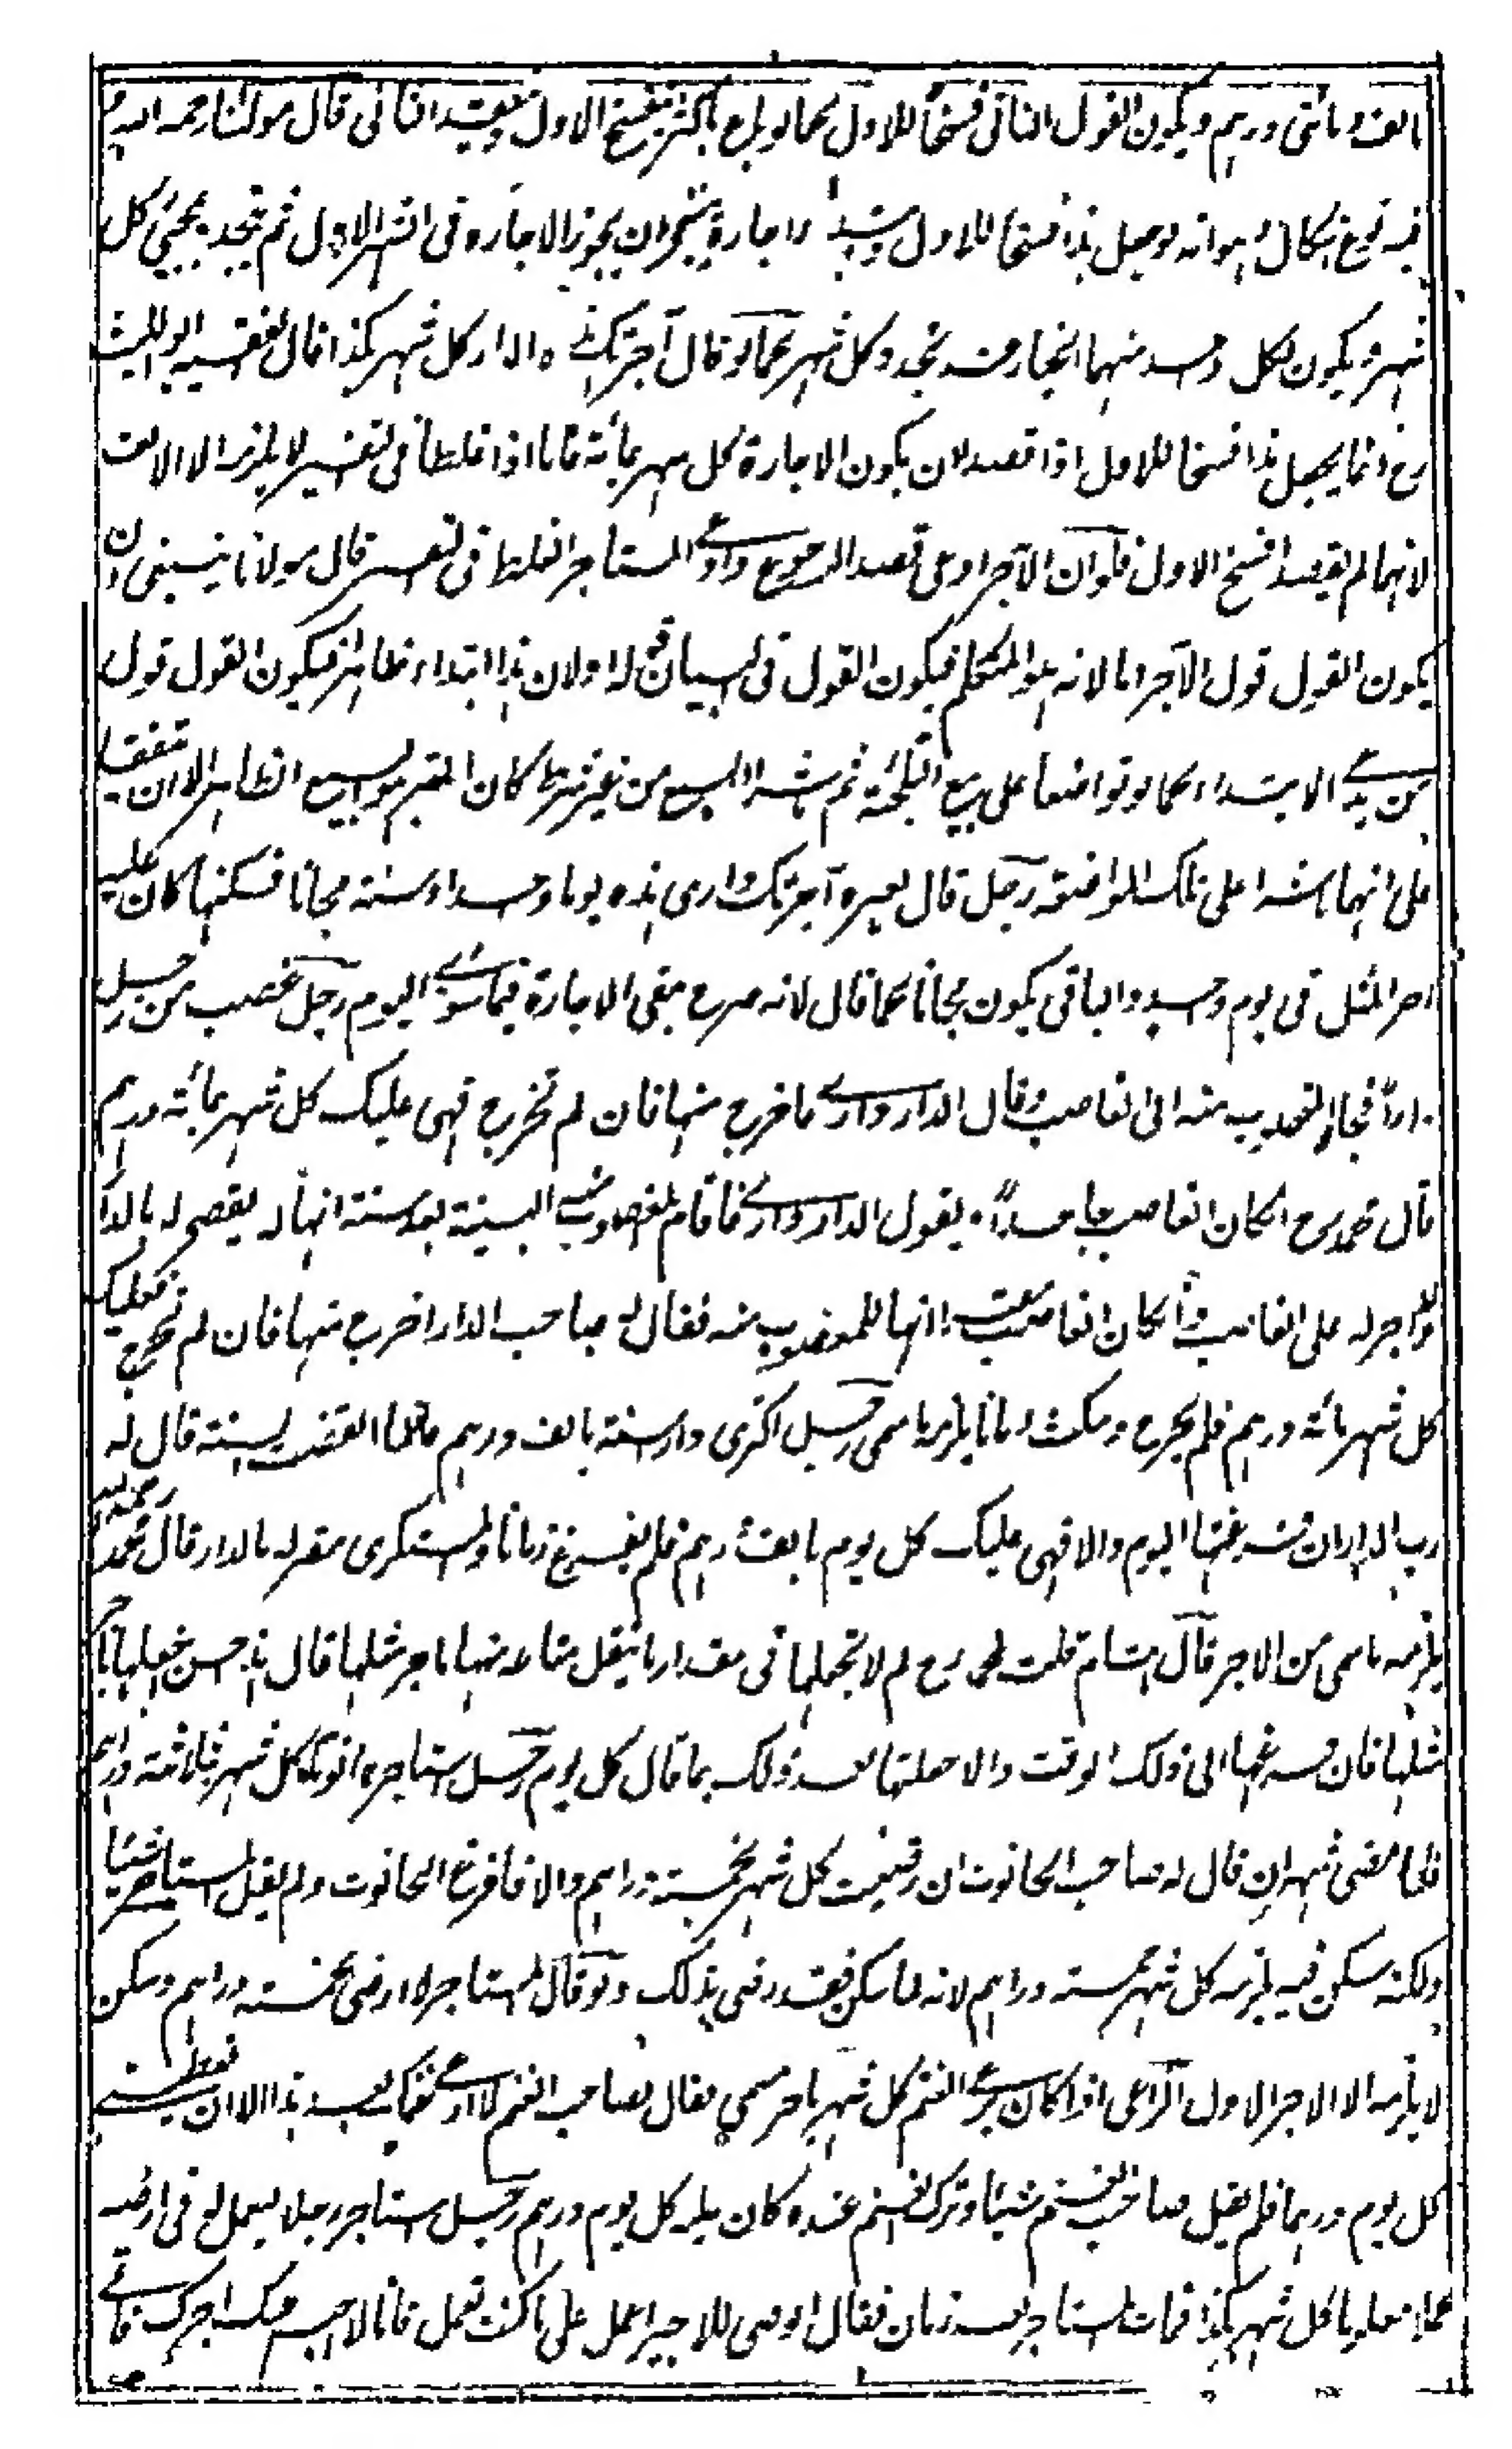 الف ومائتى درهم ويكون القول الثانى فسخا للاول كما لو باع باكثر ينفسخ الاول وينعقد الثانى قال مولنا رحمه الله و
فيه نوع اشكال وهو انه لو جعل هذا فسخا للاول وابتداء اجارة ينبغى ان يجوز الاجارة فى الشهر الاول ثم يتجدد بمجيئ كل
شهر ويكون لكل واحد منهما الخيار عند تجدد كل شهر كما لو قال آجرتك هذه الدار كل شهر بكذا قال الفقيه ابو الليث
رح انما يجعل هذا فسخا للاول اذا قصدا ان يكون الاجارة كل شهر بمائة فاما اذا غلطا فى التفسير لا يلزمه الا الالف
لانهما لم يقصدا فسخ الاول فلو ان الآجر ادعى قصد الرجوع وادعى المستاجر الغلط فى التفسير قال مولانا ينبغى ان
يكون القول قول الآجر اما لانه هو المتكلم فيكون القول فى البيان قوله او لان هذا ابتداء ظاهرا فيكون القول قول
من يدعى الابتداء كما لو تواضعا على بيع التلجئة ثم باشرا البيع من غير شرط كان المعتبر هو البيع الظاهر الا ان يتفقا
على انهما باشرا على تلك المواضعة رجل قال لغيره آجرتك دارى هذه يوما واحدا وسنة مجانا فسكنها كان عليه
اجر المثل فى يوم واحد والباقى يكون مجانا كما قال لانه صرح بنفى الاجارة فيما سوى اليوم رجل غصب من رجل
دارا فجاء المغصوب منه الى الغاصب وقال الدار دارى فاخرج منها فان لم تخرج فهى عليك كل شهر بمائة درهم
قال محمد رح ان كان الغاصب جاحدا ويقول الدار دارى فاقام المغصوب منه البينة بعد سنة انها له يقضى له بالدار
ولا اجر له على الغاصب وان كان الغاصب مقرا انها للمغصوب منه فقال له صاحب الدار اخرج منها فان لم تخرج فعليك
كل شهر مائة درهم فلم يخرج ومكث زمانا يلزمه ما سمى رجل اكترى دارا سنة بالف درهم فلما انقضت السنة قال له
رب الدار ان فرغتها اليوم والا فهى عليك كل يوم بالف درهم فلم يفرغ زمانا والمستكرى مقر له بالدار قال محمد رحمه الله
يلزمه ما سمى من الاجر قال هشام قلت لمحمد رح لم لا تجعلها فى مقدار ما ينقل متاعه منها باجر مثلها قال هذا حسن اجعلها باجر
مثلها فان فرغها الى ذلك الوقت والا جعلتها بعد ذلك بما قال كل يوم رجل استاجر حانوتا كل شهر بثلاثة دراهم
فلما مضى شهران قال له صاحب الحانوت ان رضيت كل شهر بخمسة دراهم والا فافرغ الحانوت ولم يقل المستاجر شيئا
ولكنه سكن فيه يلزمه كل شهر خمسة دراهم لانه لما سكن فقد رضى بذلك ولو قال المستاجر لا ارضى بخمسة دراهم وسكن
لا يلزمه الا الاجر الاول الراعى اذا كان يرعى الغنم كل شهر باجر مسمى فقال لصاحب الغنم لا ارعى غنمك بعد هذا الا ان تعطينى
كل يوم درهما فلم يقل صاحب الغنم شيئا وترك الغنم عنده كان عليه كل يوم درهم رجل استاجر رجلا ليعمل له فى ارضه
عملا معلوما كل شهر بكذا فمات المستاجر بعد زمان فقال الوصى للاجير اعمل على ما كنت تعمل فانا لا احبس عنك اجرك فاتى